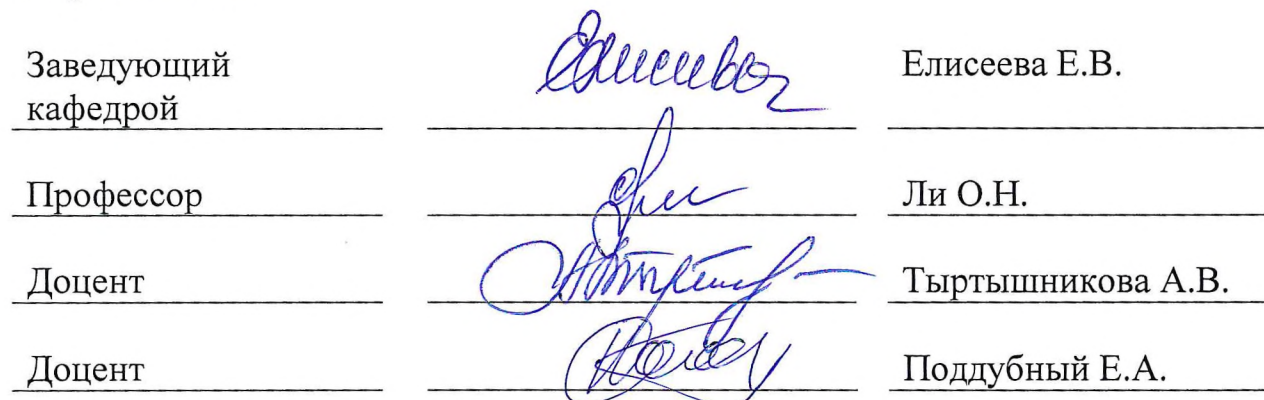 Заведующий
кафедрой Елисеева Е.В.
Профессор Ли О.Н.
Доцент Тыртышникова А.В.
Доцент Поддубный Е.А.